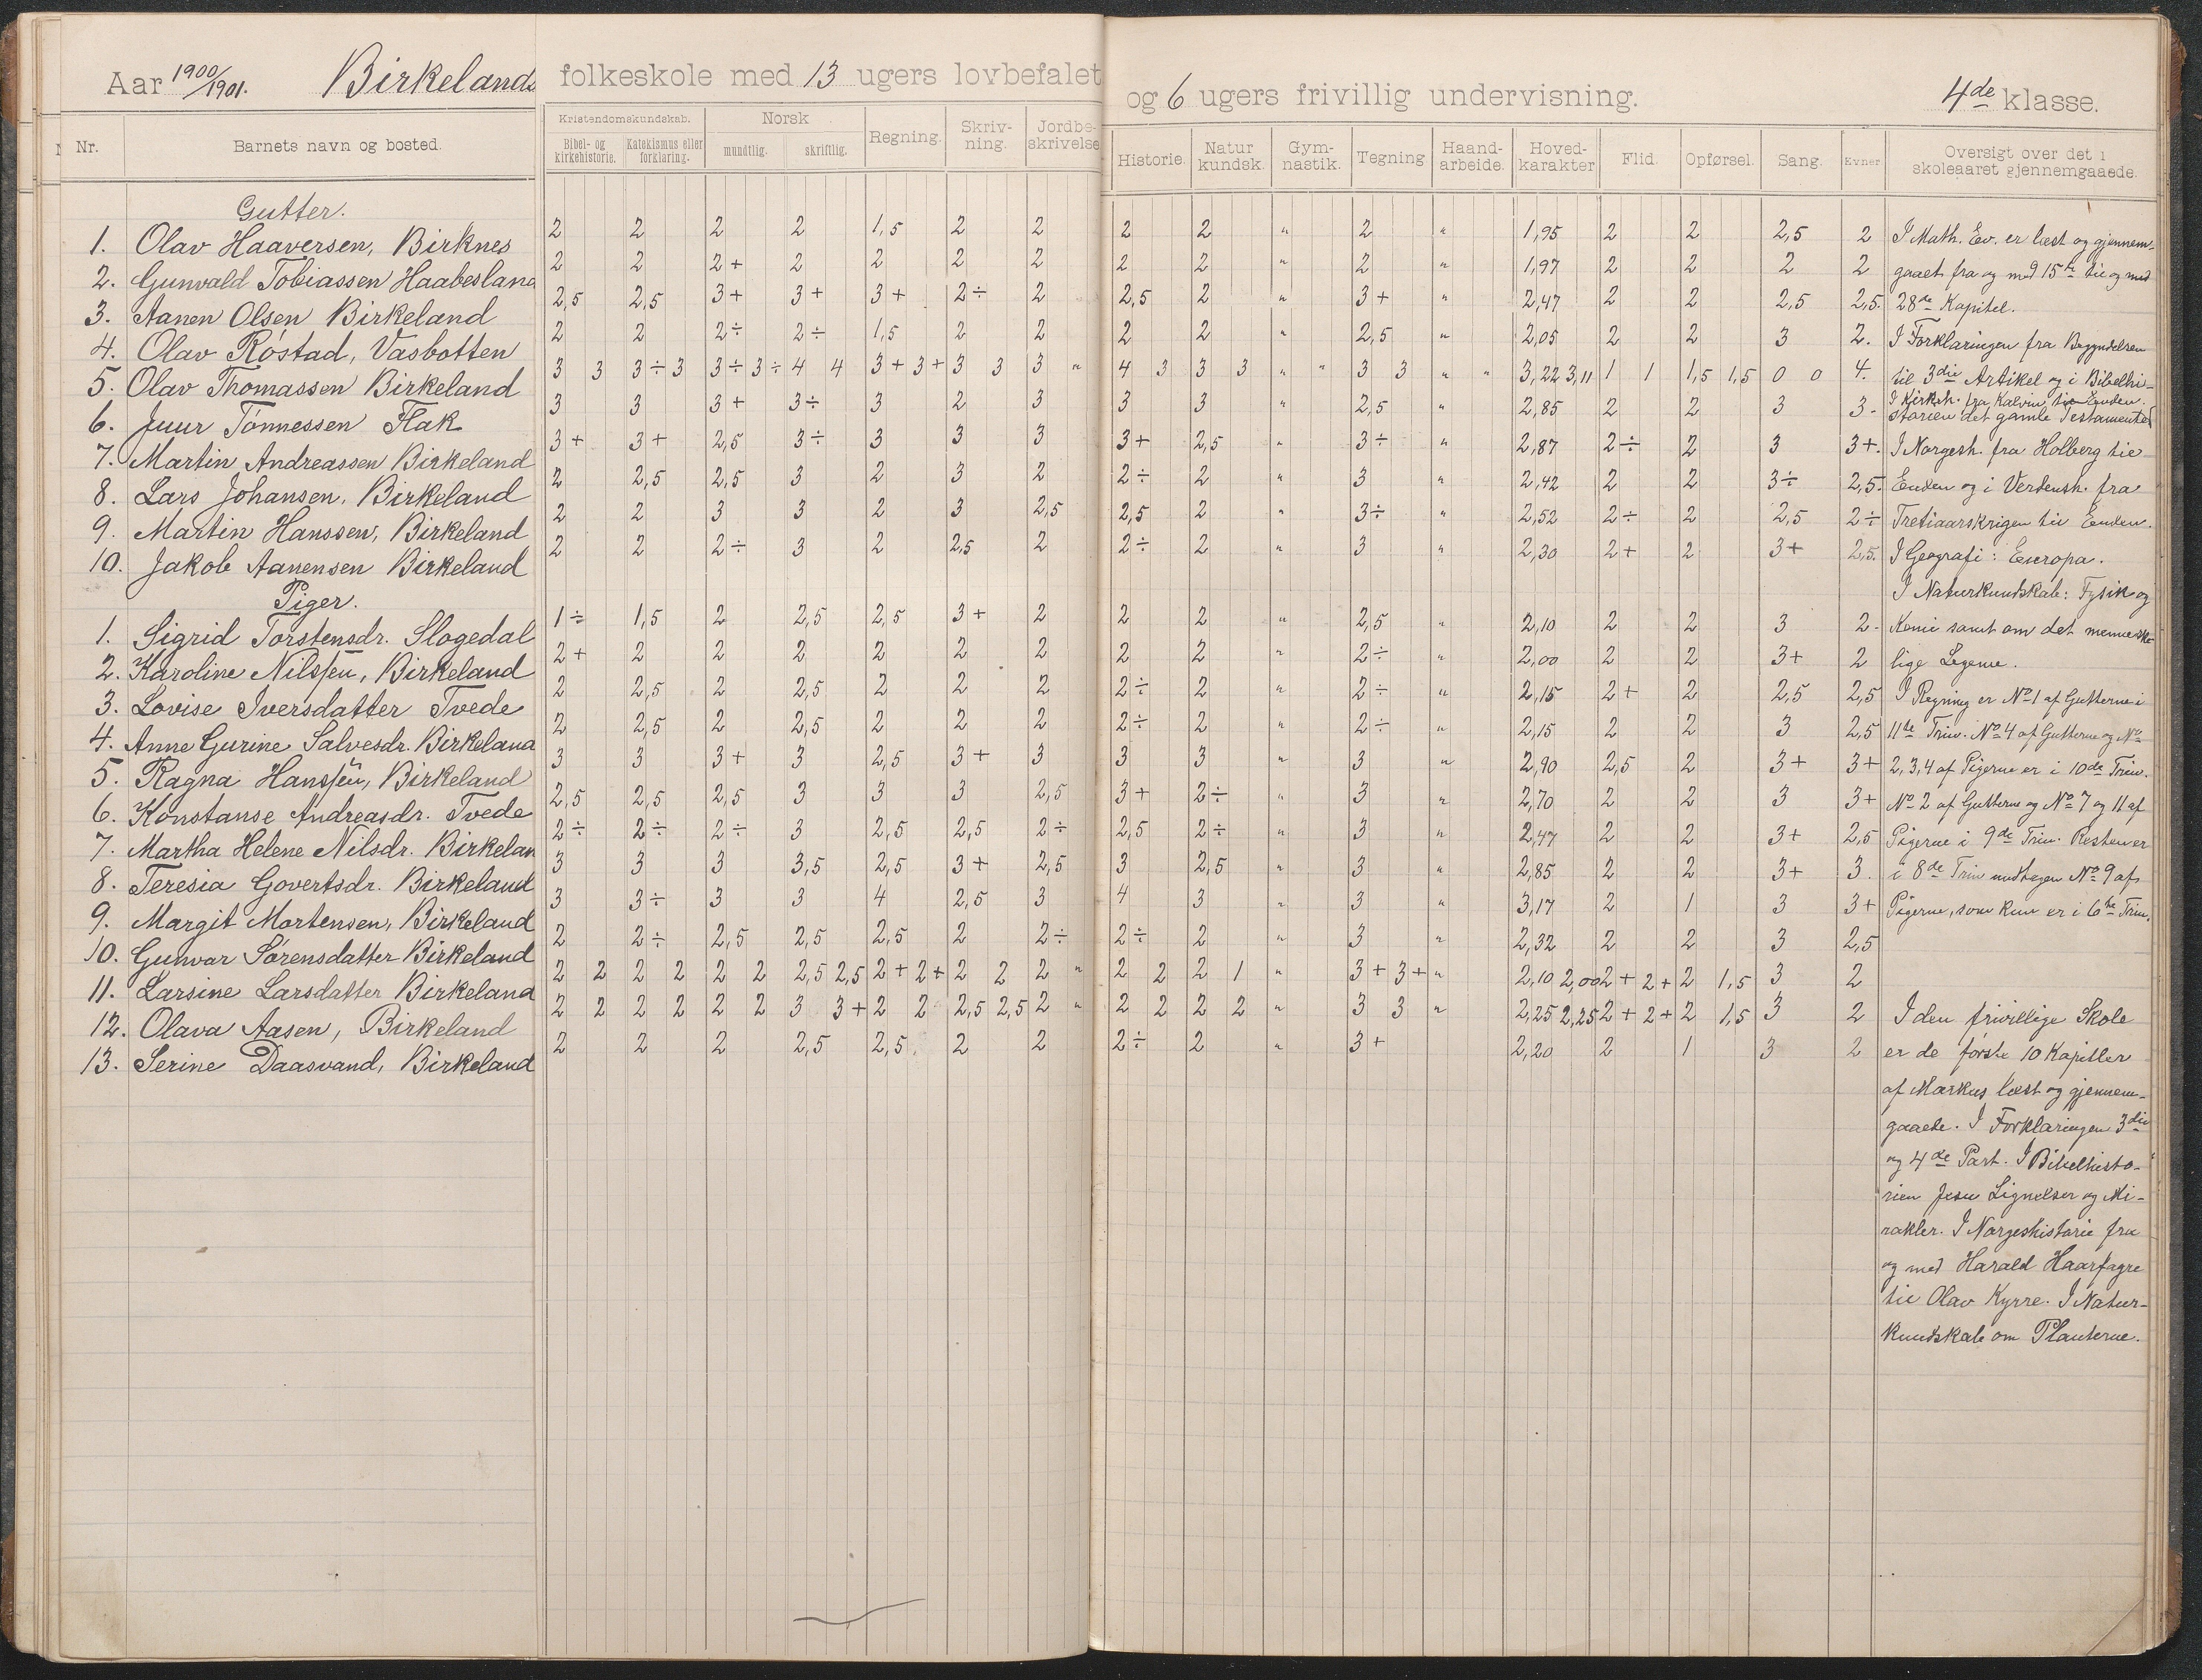 Aar 1900/1901. Birkelands folkeskole med 13 ugers lovbefalet og 6 ugers frivillig undervisning. 4de klasse.
Nr. Barnets navn og bosted. Kristendomskundskab. Bibel- og kirkehistorie. Katekismus eller forklaring. Norsk mundtlig. skriftlig. Regning. Skriv-ning. Jordbe-skrivelse Historie. Natur kundsk. Gym-nastik. Tegning Haand-arbeide. Hoved-karakter Flid. Opførsel. Sang. Evner Oversigt over det i skoleaaret gjennemgaaede.
Gutter.
1. Olav Haaversen, Birknes 2 2 2 2 1,5 2 2 2 2 " 2 " 1,95 2 2 2,5 2
2. Gunvald Tobiassen Haabesland 2 2 2+ 2 2 2 2 2 2 " 2 " 1,97 2 2 2 2
3. Aanen Olsen Birkeland 2,5 2,5 3+ 3+ 3+ 2÷ 2 2,5 2 " 3+ " 2,47 2 2 2,5 2,5.
4. Olav Røstad, Vasbotten 2 2 2÷ 2÷ 1,5 2 2 2 2 " 2,5 " 2,05 2 2 3 2.
5. Olav Thomassen Birkeland 3 3 3÷ 3 3÷ 3÷ 4 4 3+ 3+ 3 3 3 " 4 3 3 3 " " 3 3 " " 3,22 3,11 1 1 1,5 1,5 0 0 4.
6. Juur Tønnessen Flak 3 3 3+ 3÷ 3 2 3 3 3 " 2,5 " 2,85 2 2 3 3-
7. Martin Andreassen Birkeland 3+ 3+ 2,5 3÷ 3 3 3 3+ 2,5 " 3÷ " 2,87 2÷ 2 3 3+.
8. Lars Johansen, Birkeland 2 2,5 2,5 3 2 3 2 2÷ 2 " 3 " 2,42 2 2 3÷ 2,5.
9. Martin Hanssen, Birkeland 2 2 3 3 2 3 2,5 2,5 2 " 3÷ " 2,52 2÷ 2 2,5 2÷
10. Jakob Aanensen Birkeland 2 2 2÷ 3 2 2,5 2 2÷ 2 " 3 " 2,30 2+ 2 3+ 2,5.
Piger.
1. Sigrid Torstensdr. Slogedal 1÷ 1,5 2 2,5 2,5 3+ 2 2 2 " 2,5 " 2,10 2 2 3 2-
2. Karoline Nilssen, Birkeland 2+ 2 2 2 2 2 2 2 2 " 2÷ " 2,00 2 2 3+ 2
3. Lovise Iversdatter Tvede 2 2,5 2 2,5 2 2 2 2÷ 2 " 2÷ " 2,15 2+ 2 2,5 2,5
4. Anne Gurine Salvesdr. Birkeland 2 2,5 2 2,5 2 2 2 2÷ 2 " 2÷ " 2,15 2 2 3 2,5
5. Ragna Hanssen, Birkeland 3 3 3+ 3 2,5 3+ 3 3 3 " 3 " 2,90 2,5 2 3+ 3+
6. Konstanse Andreasdr. Tvede 2,5 2,5 2,5 3 3 3 2,5 3+ 2÷ " 3 " 2,70 2 2 3 3+
7. Martha Helene Nilsdr. Birkelan 2÷ 2÷ 2÷ 3 2,5 2,5 2÷ 2,5 2÷ " 3 " 2,47 2 2 3+ 2,5
8. Teresia Govertsdr. Birkeland 3 3 3 3,5 2,5 3+ 2,5 3 2,5 " 3 " 2,85 2 2 3+ 3.
9. Margit Mortensen, Birkeland 3 3÷ 3 3 4 2,5 3 4 3 " 3 " 3,17 2 1 3 3+
10. Gunvor Sørensdatter Birkeland 2 2÷ 2,5 2,5 2,5 2 2÷ 2÷ 2 " 3 " 2,32 2 2 3 2,5
11. Larsine Larsdatter Birkeland 2 2 2 2 2 2 2,5 2,5 2+ 2+ 2 2 2 " 2 2 2 1 " 3+ 3+ " 2,10 2,00 2+ 2+ 2 1,5 3 2
12. Olava Aasen, Birkeland 2 2 2 2 2 2 3 3+ 2 2 2,5 2,5 2 " 2 2 2 2 " 3 3 " 2,25 2,25 2+ 2+ 2 1,5 3 2
13. Serine Daasvand, Birkeland 2 2 2 2,5 2,5 2 2 2÷ 2 " 3+ 2,20 2 1 3 2
I Math. Ev. er læst og gjennem-
gaaet fra og med 15de til og med
28de Kapitel.
I Forklaringen fra Begyndelsen
til 3die Artikel og i Bibelhi-
I Kirkeh. fra Kalvin til Enden.
storien det gamle Testamentet
I Norgesh. fra Holberg til
Enden og i Verdensh. fra
Tretiaarskrigen til Enden.
I Geografi: Europa.
I Naturkundskab: Fysik og
Kemi samt om det menneske-
lige Legeme.
I Regning er No 1 af Gutterne i
11te Trin. No 4 af Gutterne og No
2, 3, 4 af Pigerne er i 10de Trin.
No 2 af Gutterne og No 7 og 11 af
Pigerne i 9de Trin. Resten er
i 8de Trin undtagen No 9 af
Pigerne, som kun er i 6te Trin.
I den frivillige Skole
er de første 10 Kapitler
af Markus læst og gjennem-
gaaede. I Forklaringen 3die
og 4de Part. I Bibelhisto-
rien Jesu Lignelser og Mi-
rakler. I Norgeshistorie fra
og med Harald Haarfagre
til Olav Kyrre. I Natur-
kundskab om Planterne.